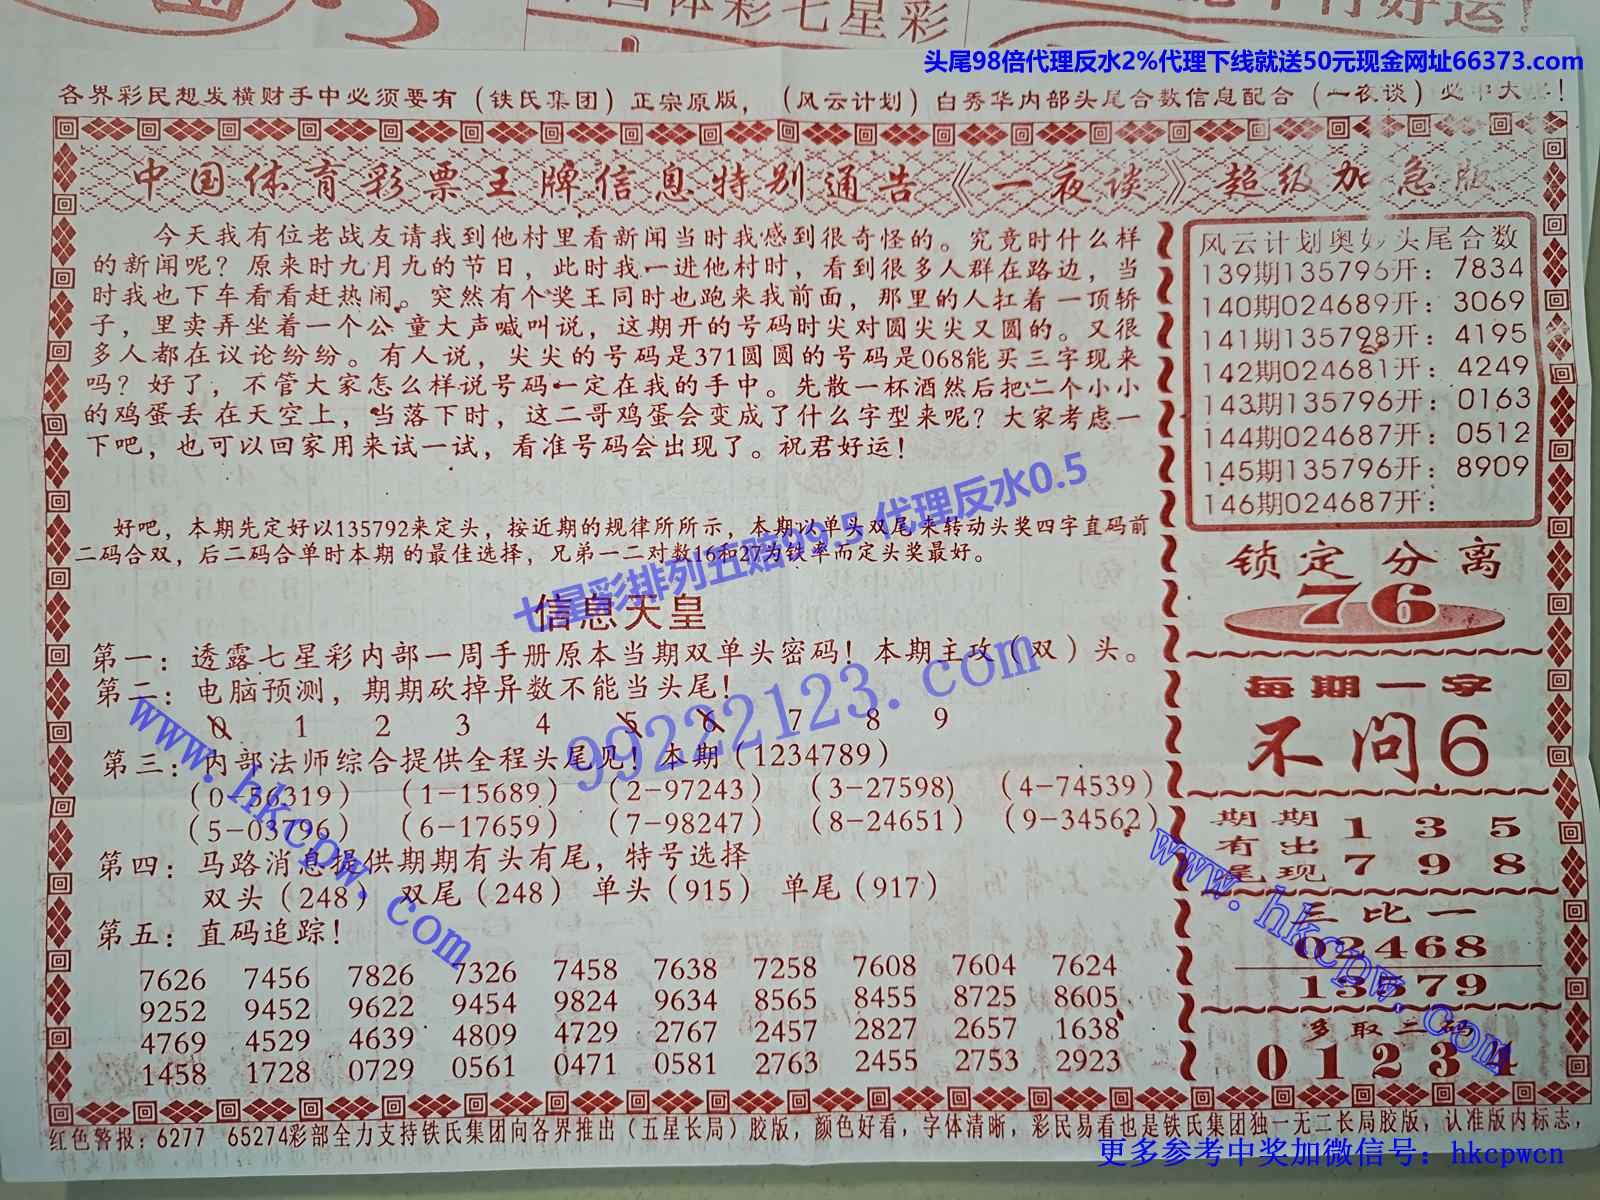 中国体彩七星彩
头尾98倍代理反水2%代理下线就送50元现金网址66373.com
各界彩民想发横财手中必须要有（铁氏集团）正宗原版，（风云计划）白秀华内部头尾合数信息配合（一夜谈）必中大！
中国体育彩票王牌信息特别通告《一夜谈》超级加急版
今天我有位老战友请我到他村里看新闻当时我感到很奇怪的。究竟时什么样
的新闻呢？原来时九月九的节日，此时我一进他村时，看到很多人群在路边，当
时我也下车看看赶热闹。突然有个奖王同时也跑来我前面，那里的人扛着一顶轿
子，里卖弄坐着一个公童大声喊叫说，这期开的号码时尖对圆尖尖又圆的。又很
多人都在议论纷纷。有人说，尖尖的号码是371圆圆的号码是068能买三字现来
吗？好了，不管大家怎么样说号码一定在我的手中。先散一杯酒然后把二个小小
的鸡蛋丢在天空上，当落下时，这二哥鸡蛋会变成了什么字型来呢？大家考虑一
下吧，也可以回家用来试一试，看准号码会出现了。祝君好运！
好吧，本期先定好以135792来定头，按近期的规律所所示，本期以单头双尾来转动头奖四字直码前
二码合双，后二码合单时本期的最佳选择，兄弟一二对数16和27为铁率而定头奖最好。
七星彩排列五赔99.5 代理反水0.5
99222123.com
信息天皇
第一：透露七星彩内部一周手册原本当期双单头密码！本期主攻（双）头。
第二：电脑预测，期期砍掉异数不能当头尾！
0 1 2 3 4 5 6 7 8 9
第三：内部法师综合提供全程头尾见！本期（1234789）
（0-56319）（1-15689）（2-97243）（3-27598）（4-74539）
（5-03796）（6-17659）（7-98247）（8-24651）（9-34562）
第四：马路消息提供期期有头有尾，特号选择
双头（248） 双尾（248） 单头（915） 单尾（917）
第五：直码追踪！
7626 7456 7826 7326 7458 7638 7258 7608 7604 7624
9252 9452 9622 9454 9824 9634 8565 8455 8725 8605
4769 4529 4639 4809 4729 2767 2457 2827 2657 1638
1458 1728 0729 0561 0471 0581 2763 2455 2753 2923
www.hkcpw.com
风云计划奥妙头尾合数
139期135796开：7834
140期024689开：3069
141期135798开：4195
142期024681开：4249
143期135796开：0163
144期024687开：0512
145期135796开：8909
146期024687开：
锁定分离
76
每期一字
不问6
期期 1 3 5
有出
尾现 7 9 8
三比一
02468
13579
多取二码
01234
www.hkcpw.com
红色警报：6277 65274彩部全力支持铁氏集团向各界推出（五星长局）胶版，颜色好看，字体清晰，彩民易看也是铁氏集团独一无二长局胶版，认准版内标志，
更多参考中奖加微信号：hkcpwcn